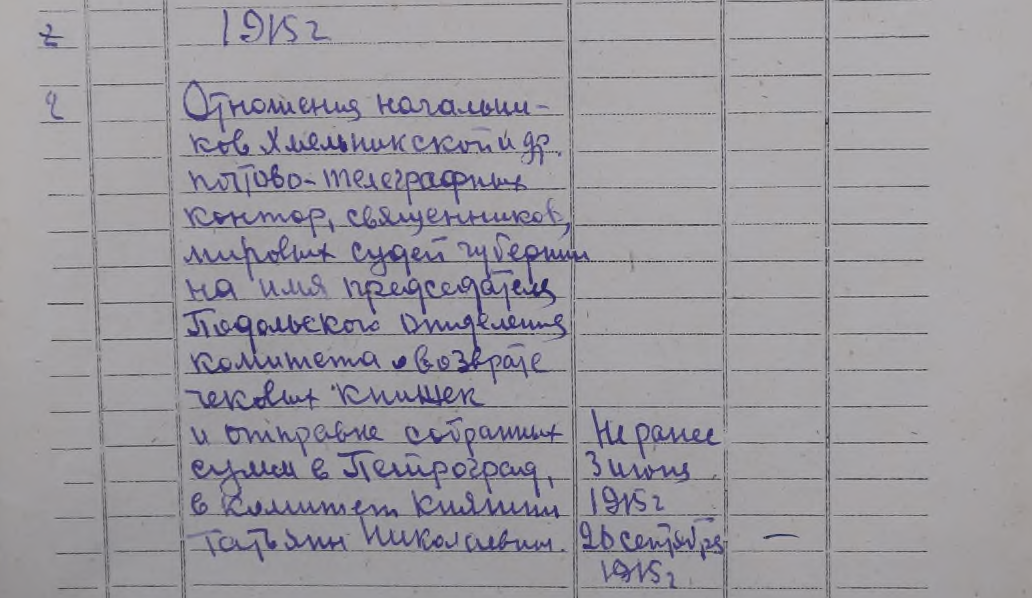 1915 г
2
Отношения начальни-
ков Хмельникской и др.
почтово-телеграфных
контор, священников,
мировых судей губернии
на имя председателя
Подольского отделения
комитета о возврате
чековых книжек
и отправке собранных
сумм в Петроград,
в Комитет Княжны
Татьяны Николаевны.
Не ранее
3 июня
1915 г
26 сентября
1915 г
—